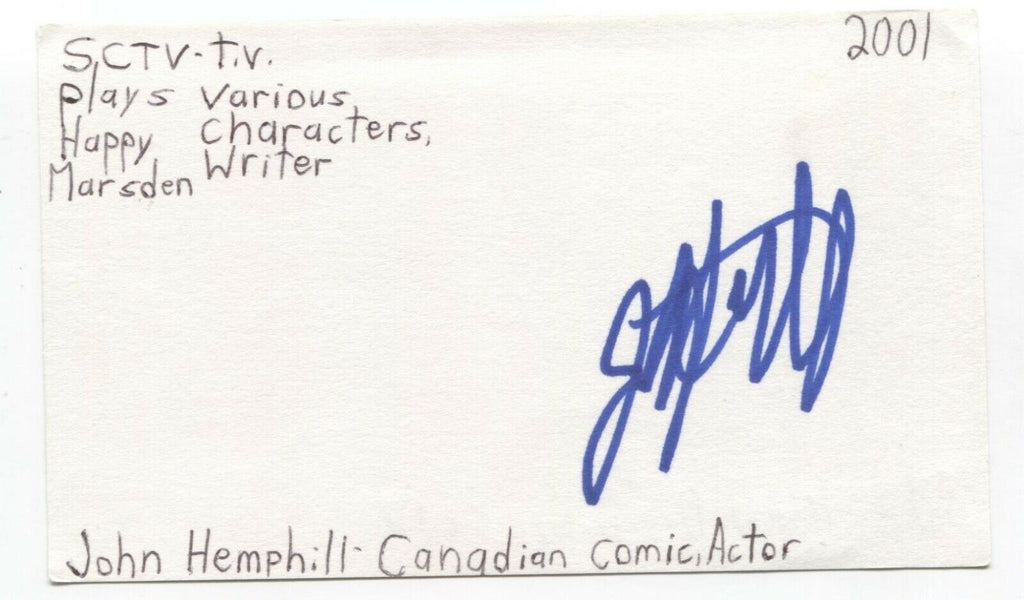 2001
SCTV-t.v.
Plays Various
Happy Characters,
Marsden Writer
John Hemphill- Canadian Comic, Actor